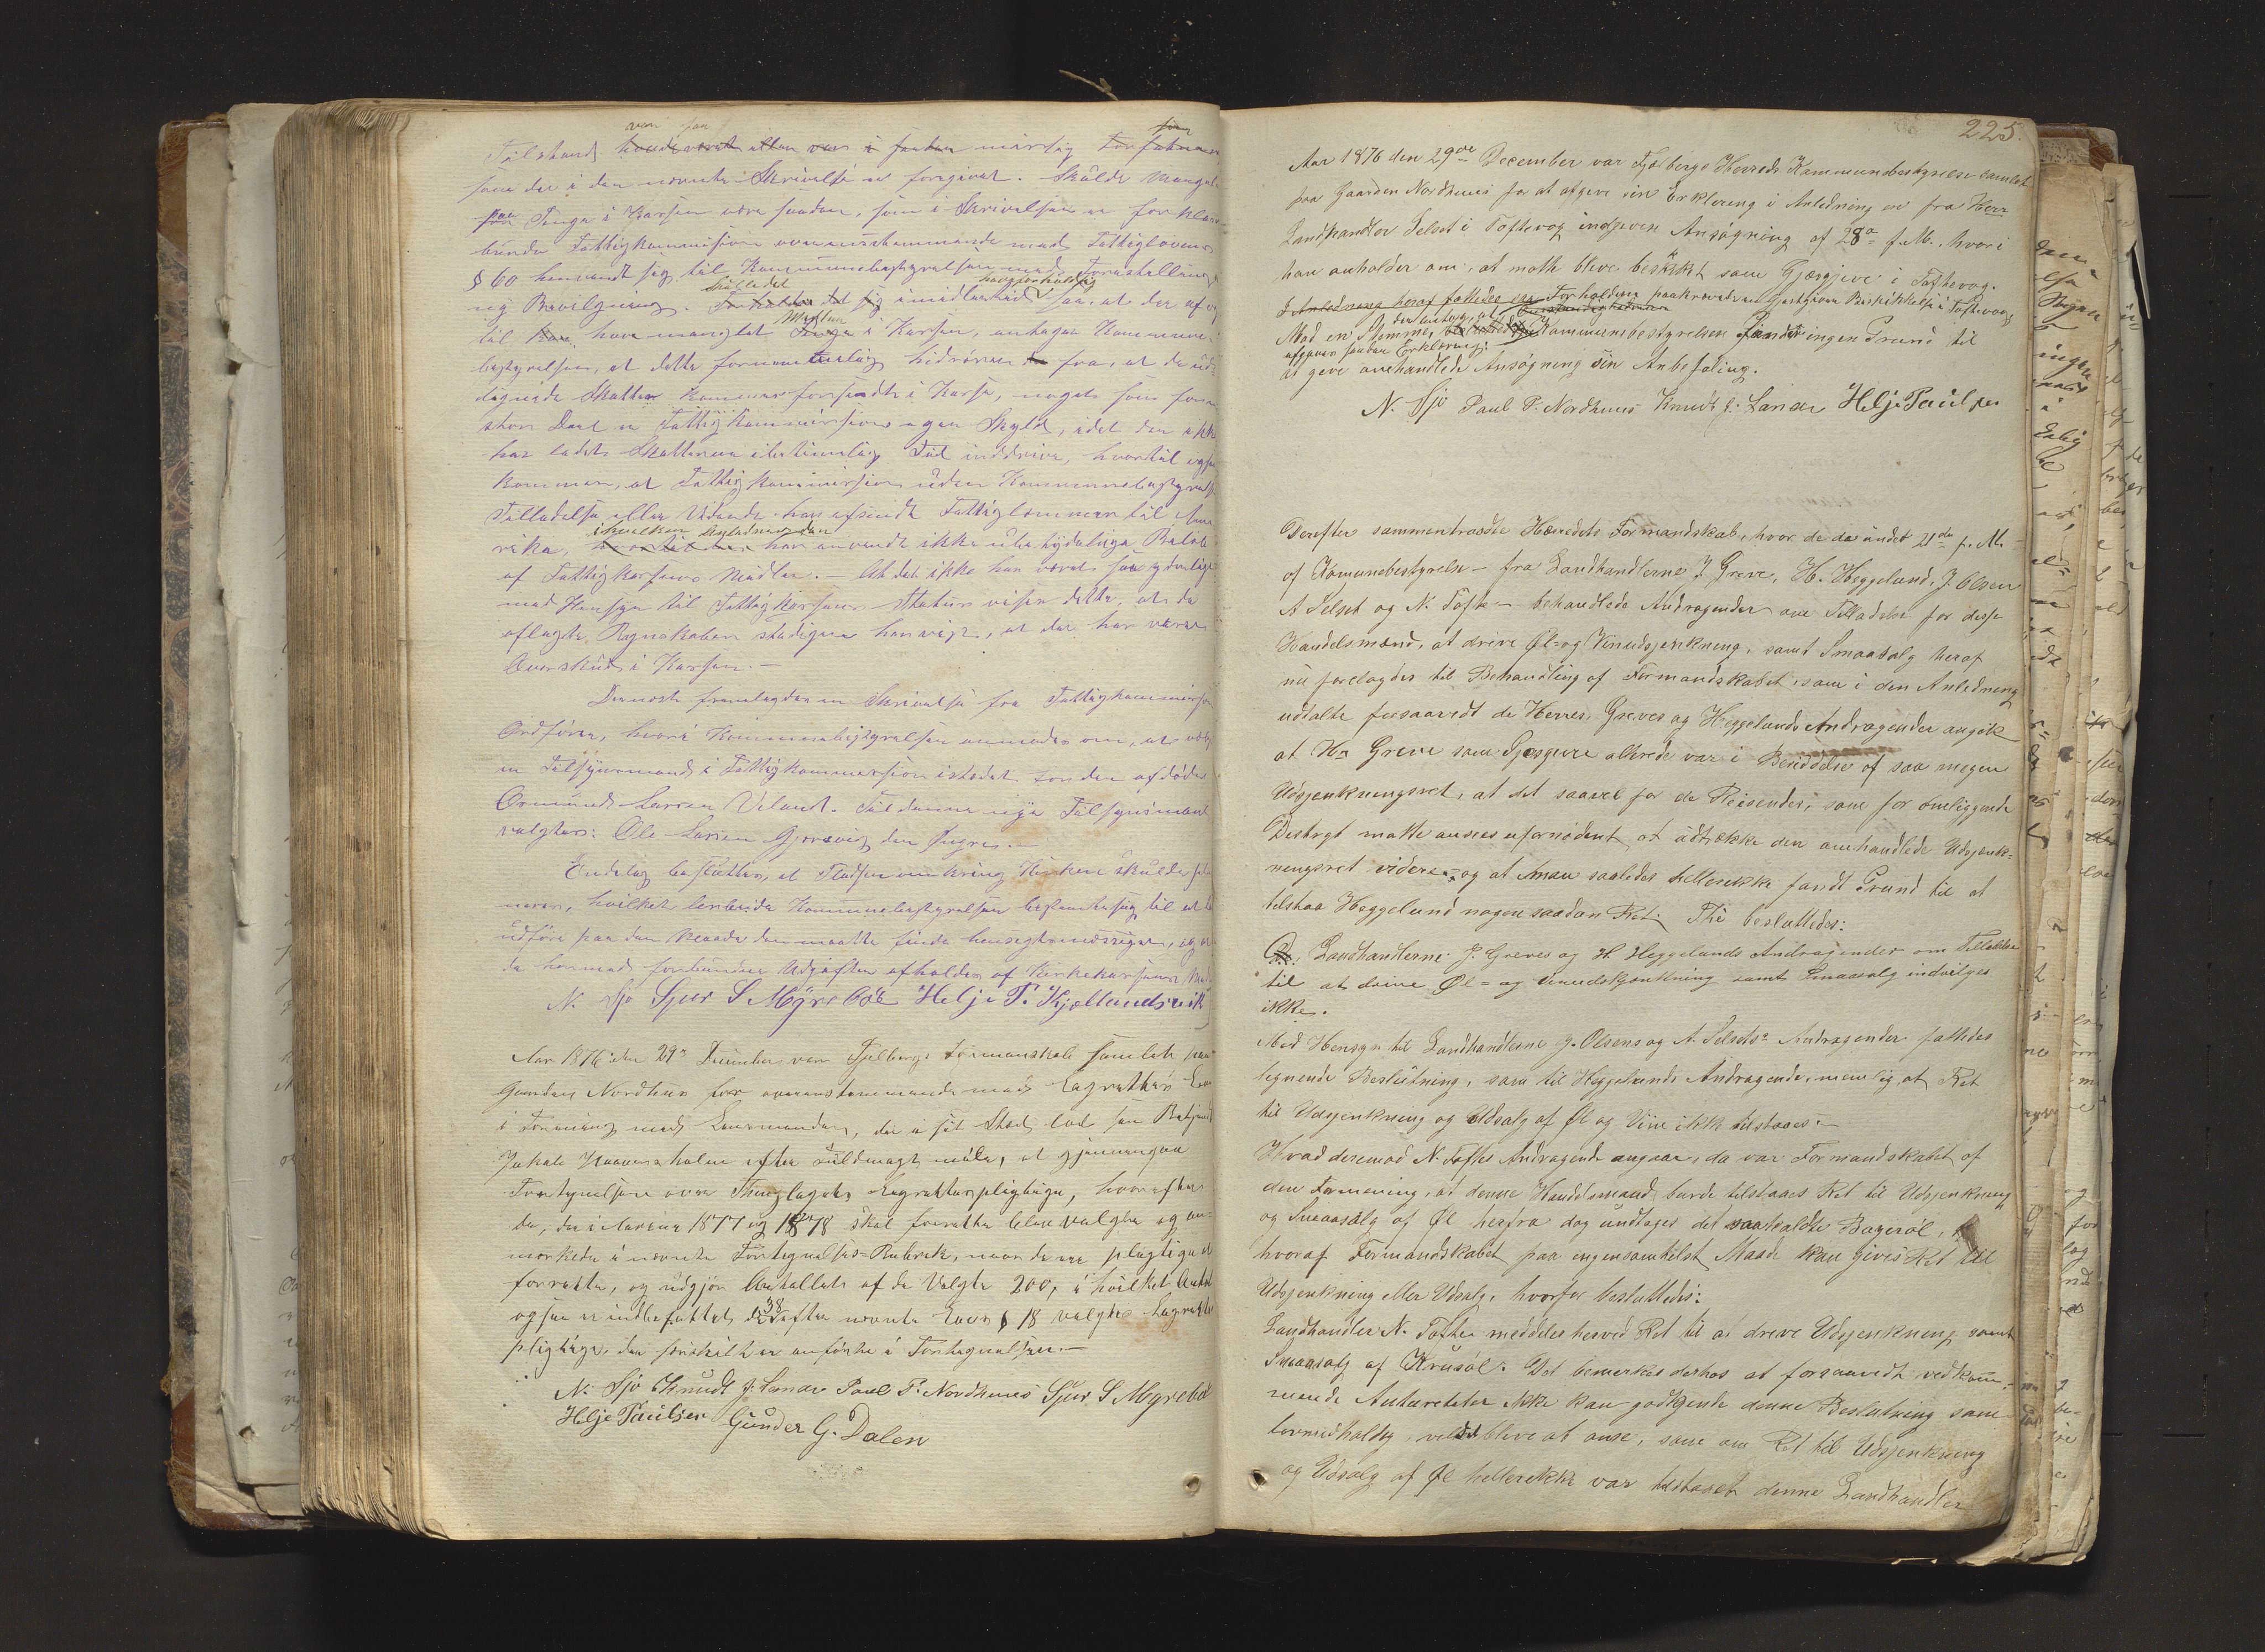 var saa
Tilstand havde været eller var i saadan mislig Forfatning
som der i den nævnte Skrivelse er foregivet. Skulde Mangel
paa Penge i Kassen være saadan, som i Skrivelsen er forklaret
burde Fattigkommission overensstemmende med Fattiglovens
§ 60 henvendt sig til Kommunebestyrelsen med Forestilling
ny Bevilgning. Forholder det sig imidlertid saa, at der af og
til har have manglet Penge i Kassen, antager Kommune-
bestyrelsen, at dette formentlig hidrører fra, at de ud-
lignede Skatter kommer forsendt i Kasse, noget som for en
stor Deel er Fattigkommissions egen Skyld, idet den ikke
har ladet Skatterne itide inddrive, hvortil ogsaa
kommer, at Fattigkommission uden Kommunebestyrelsens
Tilladelse eller Vidende har afsendt Fattiglemmer til Ame
rika, i hvilken Anledning den har anvendt ikke ubetydelige Beløb
af Fattigkassens Midler. – At det ikke har været saa
med Hensyn til Fattigkassens Status viser dette, at de
aflagte Regnskaber stadigen har vist, at der har været
Overskud i Kassen. –
Dernæst fremlagdes en Skrivelse fra Fattigkommissions
Ordfører, hvori Kommunebestyrelsen anmodes om, at vælge
en Tilsynsmand i Fattigkommission istedet for den afdøde
Ormund Larsen Veland. Til denne nye Tilsynsmand
valgtes: Ole Larsen Gjersvig den Yngre. –
Endelig besluttes, at Pladsen omkring Kirken skulde
hvilket Arbeide Kommunebestyrelsen bestemte sig til at lade
udføre paa den Maade den maatte finde hensigtsmæssigst, og at
de hermed forbundne Udgifter afholdes af Kirkekassens
N. Sjo Sjur S Myrebøe Helje T. Kjellandsvik
Aar 1876 den 29de December var Fjelbergs Formandskab samlet paa
Gaarden Nordhus for overensstemmende med Lagrettes Lov
i Forening med Lensmanden, der i sit Sted lod sin Betjent
Jakob Havnsholm efter Fuldmagt møde, at gjennemgaa
Fortegnelsen over Thinglagets Lagrettespligtige, hvorefter
de, der i Aarene 1877 og 1878 skal forrette blev valgte og an-
mærkede i nævnte Fortegnelses-Rubrik, naar de ere pligtige at
forrette, og udgjør Antallet af de Valgte 200, i hvilket Antal
ogsaa er indbefattet de 38 efter nævnte Lovs § 18 valgte Lagrettes
pligtige, der særskilt er anførte i Fortegnelsen. –
N. Sjo Knudt J. Lande Paul P. Nordhuus Sjur S Myrebø
Helje Paulsen Gunder G. Dalen
225.
Aar 1876 den 29de December var Fjelbergs Herreds Kommunebestyrelse samlet
paa Gaarden Nordhuus for at afgive sin Erklæring i Anledning en fra Herr
Landhandler Selset i Toftevog indgiven Ansøgning af 28de f. M., hvori
han anholder om, at maatte blive beskikket som Gjæstgiver i Toftevog.
Mod en Stemme, der antog, at Forholdene paakrævede en Gjæstgivers Beskikkelse i Toftevog
afgaves saadan Erklæring: Kommunebestyrelsen finder ingen Grund til
at give omhandlede Ansøgning sin Anbefaling.
N. Sjo Paul P. Nordhuus Knudt J. Lande Helje Paulsen
Derefter sammentraadte Herredets Formandskab, hvor de da under 21de f. M.
af Komunebestyrelse – fra Landhandlerne J. Greve, H. Heggelund, J. Olsen
A Selset og N. Tofte – behandlede Andragender om Tilladelse for disse
Handelsmænd, at drive Øl- og Vinudsjenkning, samt Smaasalg heraf
nu foretoges til Behandling af Formandskabet, som i den Anledning
udtalte forsaavidt de Herrer Greves og Heggelunds Andragender angik
at Hr Greve som Gjæsgiver allerede var i Besiddelse af saa megen
Udsjenkningsret, at det saavel for de Reisende, som for omliggende
Destrigt maatte ansees ufornødent, at udstrække den omhandlede Udsjenk-
ningsret videre – og at man saaledes hellerikke fandt Grund til at
tilstaa Heggelund nogen saadan Ret. Thi besluttedes:
Landhandlerne J. Greves og H Heggelunds Andragender om Tilladelse
til at drive Øl- og Vinudskjenkning samt Smaasalg indvilges
ikke.
Med Hensyn til Landhandlerne J. Olsens og A. Selsets Andragender fattedes
lignende Beslutning, som til Heggelunds Andragende, nemlig, at Ret
til Udsjenkning og Udsalg af Øl og Viin ikke tilstaaes. –
Hvad deremod N. Toftes Andragende angaar, da var Formandskabet af
den Formening, at denne Handelsmand burde tilstaaes Ret til Udsjenkning
og Smaasalg af Øl herfra dog undtages det saakaldte Bayerøl,
hvoraf Formandskabet paa ingensomhelst Maade kan gives Ret til
Udsjenkning eller Udsalg, hvorfor besluttedes:
Landhandler N. Tofte meddeles herved Ret til at dreve Udsjenkning samt
Smaasalg af Krusøl. Det bemerkes derhos at forsaavidt vedkom-
mende Autoriteter ikke kan godkjende denne Beslutning som
lovmedholdig, vilde blive at anse, som om Ret til Udsjenkning
og Udsalg af Øl hellerikke var tilstaaet denne Landhandler